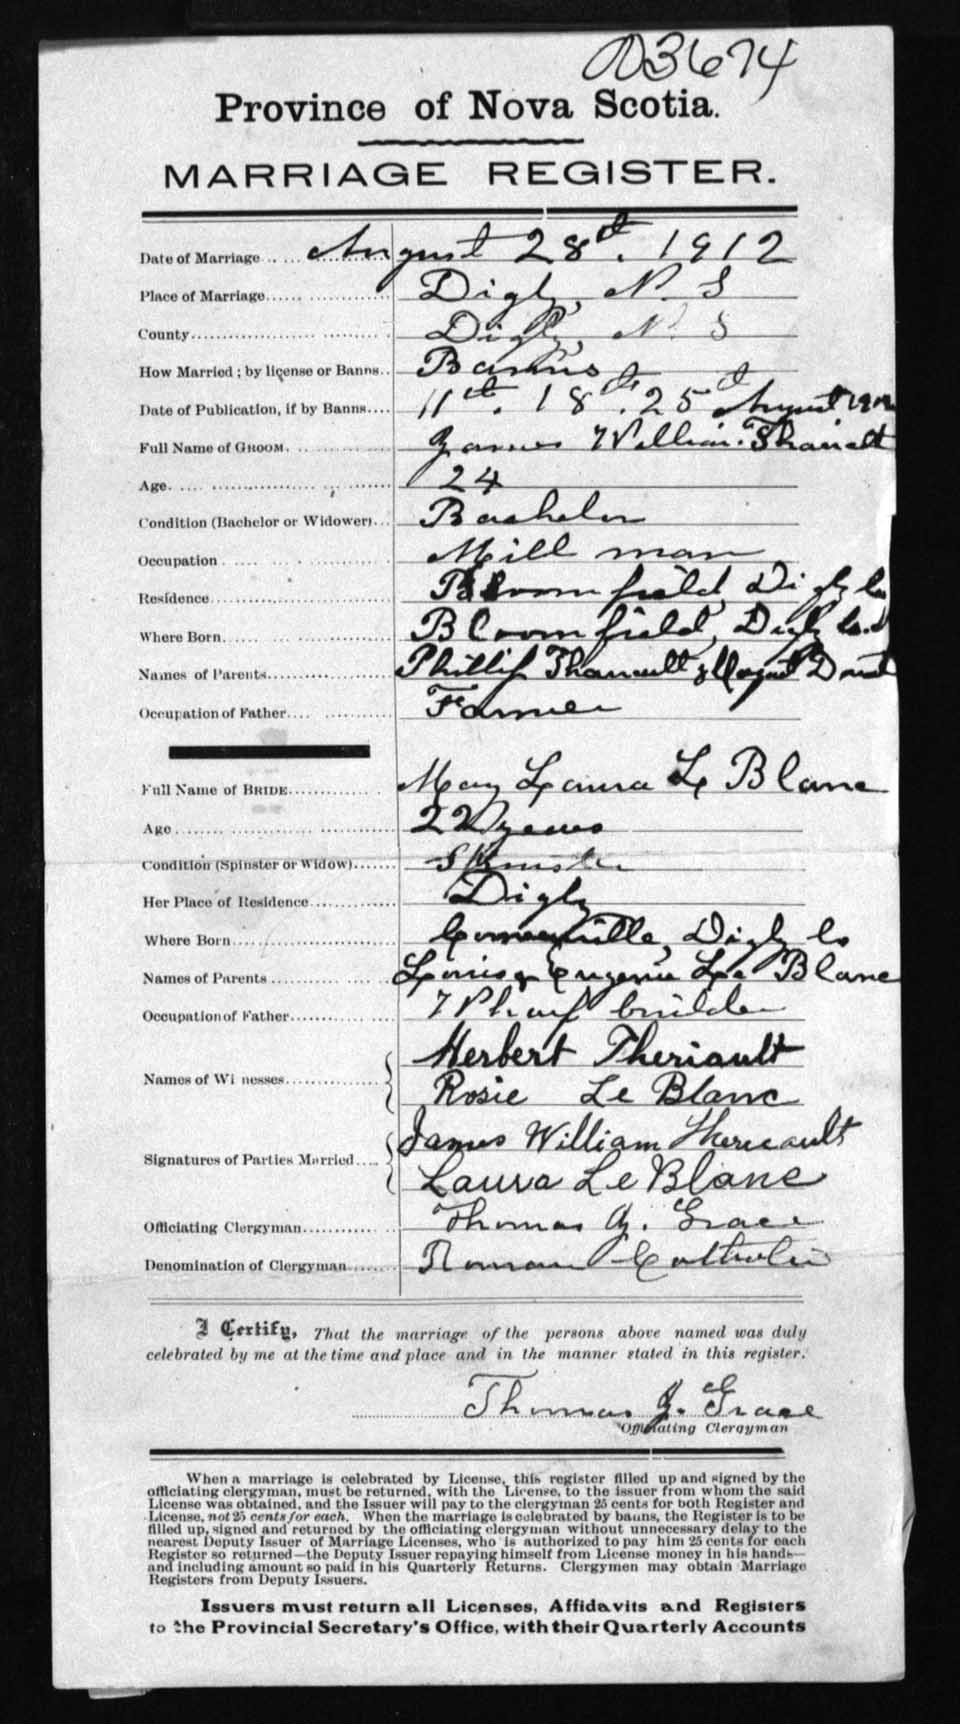 03674
Province of Nova Scotia.
MARRIAGE REGISTER.
Date of Marriage August 28th. 1912
Place of Marriage Digby, N. S
County Digby, N. S
How Married; by license or Banns Banns
Date of Publication, if by Banns 11th. 18th. 25th August 1912
Full Name of GROOM. James William
Age 24
Condition (Bachelor or Widower) Bachelor
Occupation Mill man
Residence Bloomfield, Digby Co
Where Born Bloomfield, Digby Co.
Names of Parents Phillip &
Occupation of Father Farmer
Full Name of BRIDE May Laura Le Blanc
Age 22 years
Condition (Spinster or Widow) Spinster
Her Place of Residence Digby
Where Born Digby Co
Names of Parents Louis & Eugenie Le Blanc
Occupation of Father Wharf builder
Names of Wi nesses Herbert Theriault
Rosie Le Blanc
Signatures of Parties Married James William Theriault
Laura Le Blanc
Officiating Clergyman Thomas J. Grace
Denomination of Clergyman Roman Catholic
I Certify, That the marriage of the persons above named was duly
celebrated by me at the time and place and in the manner stated in this register.
Thomas J. Grace
Officiating Clergyman
When a marriage is celebrated by License, this register filled up and signed by the
officiating clergyman, must be returned, with the License, to the issuer from whom the said
License was obtained, and the Issuer will pay to the clergyman 25 cents for both Register and
License, not 25 cents for each. When the marriage is celebrated by banns, the Register is to be
filled up, signed and returned by the officiating clergyman without unnecessary delay to the
nearest Deputy Issuer of Marriage Licenses, who is authorized to pay him 25 cents for each
Register so returned—the Deputy Issuer repaying himself from License money in his hands—
and including amount so paid in his Quarterly Returns. Clergymen may obtain Marriage
Registers from Deputy Issuers.
Issuers must return all Licenses, Affidavits and Registers
to the Provincial Secretary's Office, with their Quarterly Accounts